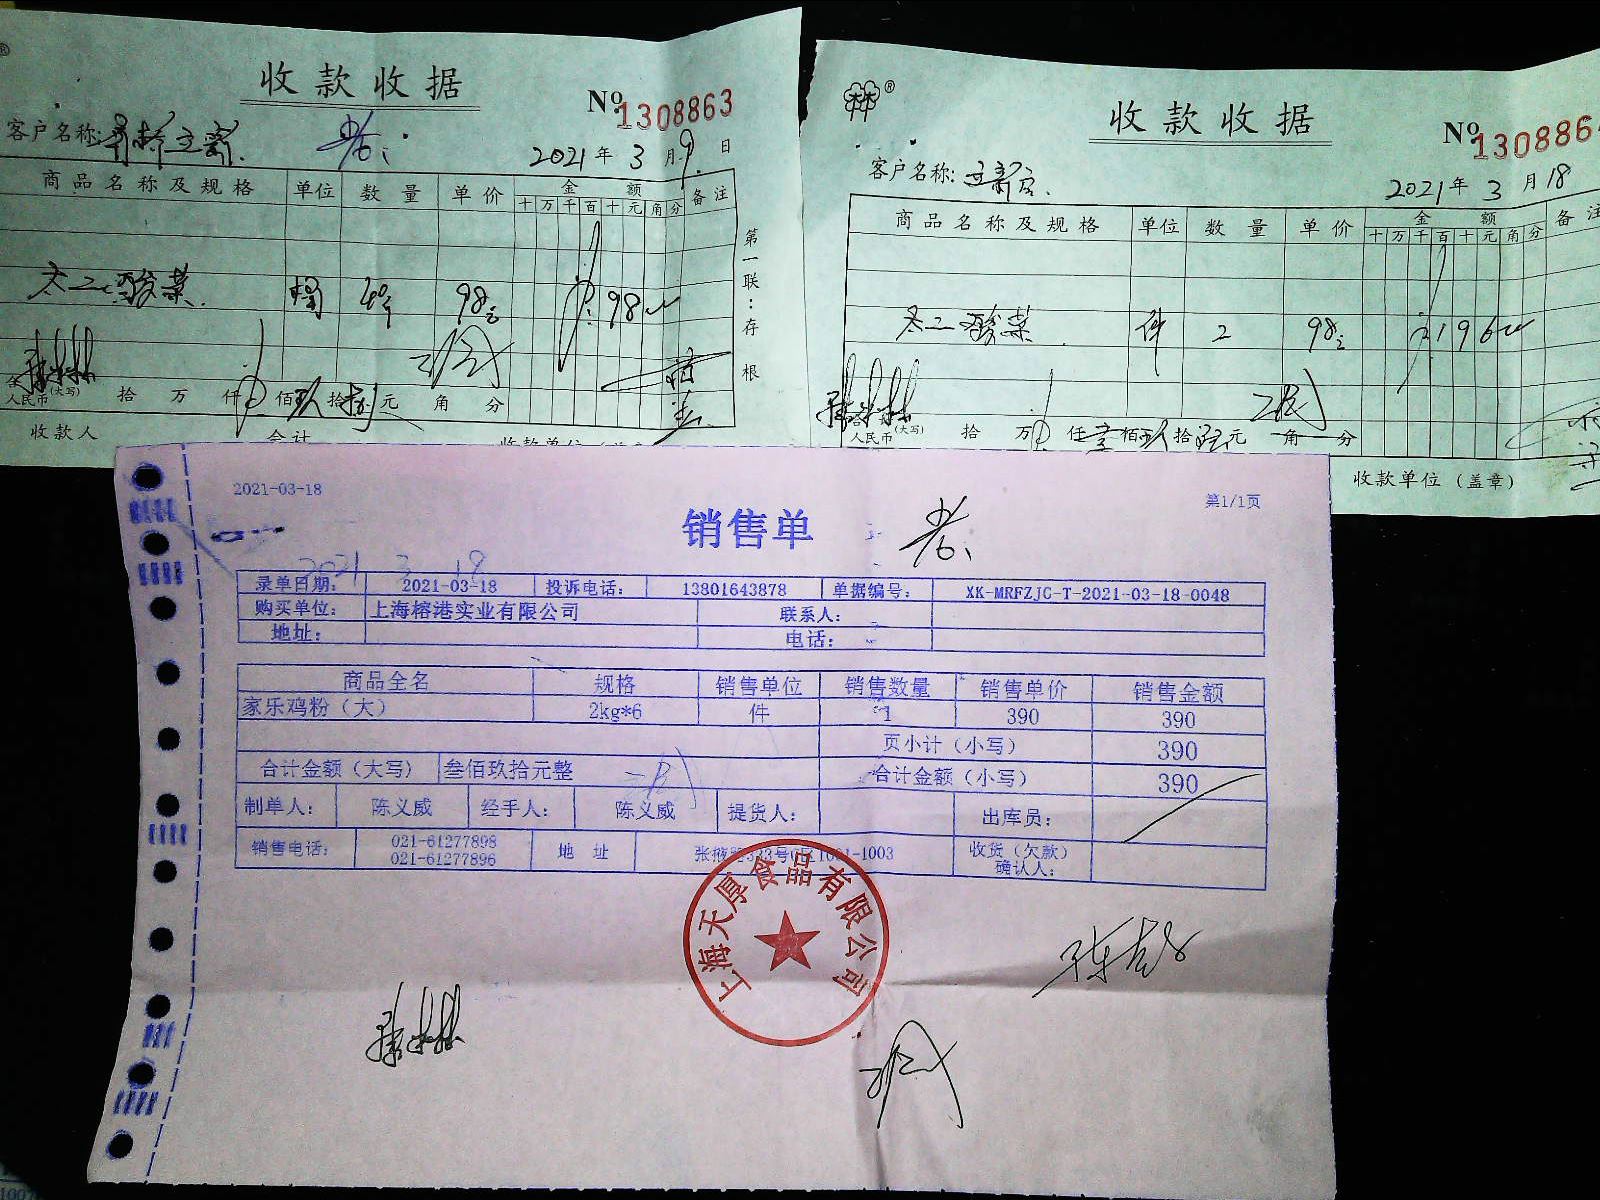 收款收据
№1308863
客户名称:
2021年3月9日
商品名称及规格 单位 数量 单价 金额 备注
十万千百十元角分
太二酸菜 98 98
第一联:存根
人民币(大写) 拾万仟佰玖拾捌元角分
收款人 合计
收款收据
№130886
客户名称:
2021年3月18
商品名称及规格 单位 数量 单价 金额 备注
十万千百十元角分
太二酸菜 件 2 98 196
人民币(大写) 拾万仟壹佰玖拾陆元角分
收款单位(盖章)
2021-03-18
第1/1页
销售单
2021 3 18
录单日期: 2021-03-18 投诉电话: 13801643878 单据编号: XK-MRFZJC-T-2021-03-18-0048
购买单位: 上海榕港实业有限公司 联系人:
地址: 电话:
商品全名 规格 销售单位 销售数量 销售单价 销售金额
家乐鸡粉(大) 2kg*6 件 1 390 390
页小计(小写) 390
合计金额(大写) 叁佰玖拾元整 合计金额(小写) 390
制单人: 陈义威 经手人: 陈义威 提货人: 出库员:
销售电话: 021-61277898 021-61277896 地址 张掖路333号C区1001-1003 收货(欠款)确认人:
上海天厚食品有限公司